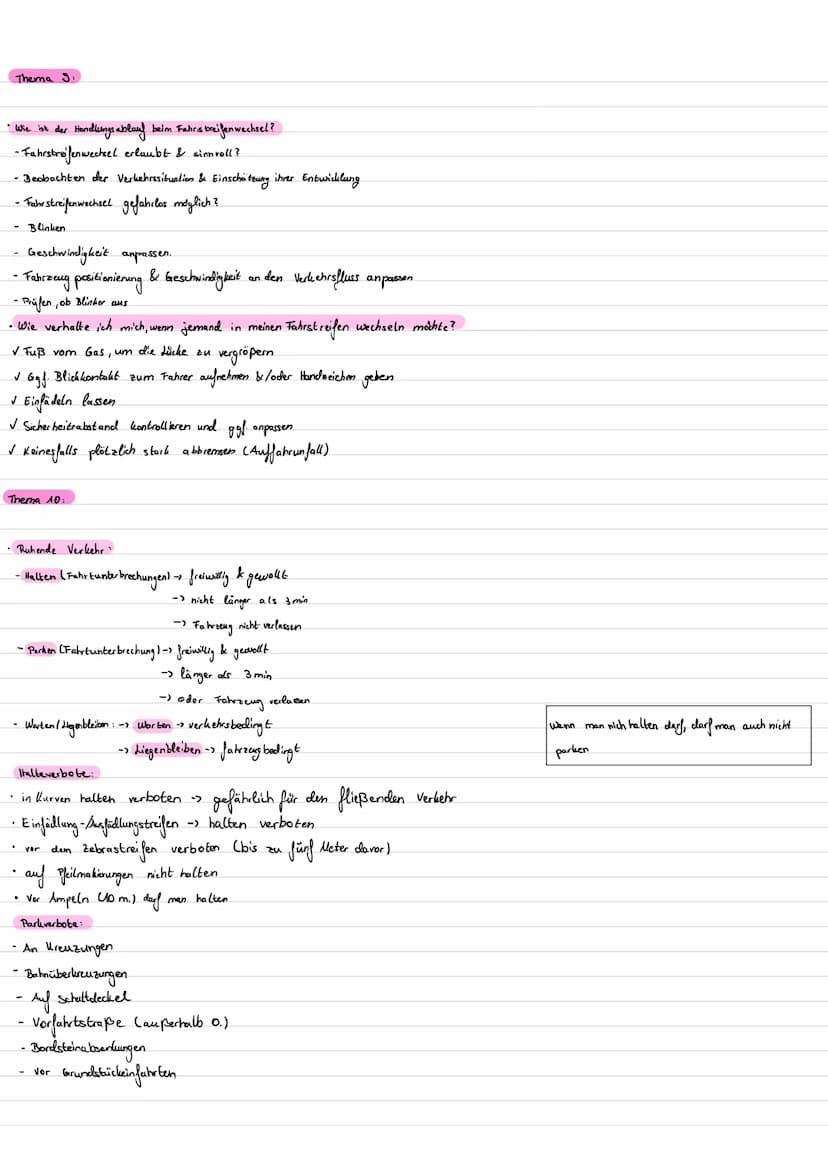 Thema 9:
· Wie ist der Handlungsablauf beim Fahrstreifenwechsel?
- Fahrstreifenwechsel erlaubt & sinnvoll?
- Beobachten der Verkehrssituation & Einschätzung ihrer Entwicklung
- Fahrstreifenwechsel gefahrlos möglich?
- Blinken
- Geschwindigkeit anpassen.
- Fahrzeug positionierung & Geschwindigkeit an den Verkehrsfluss anpassen
- Prüfen, ob Blinker aus
· Wie verhalte ich mich, wenn jemand in meinen Fahrstreifen wechseln möchte?
✓ Fuß vom Gas, um die Lücke zu vergröpern
✓ Ggf. Blickkontakt zum Fahrer aufnehmen &/oder Handzeichen geben
✓ Einfädeln lassen
✓ Sicherheitsabstand kontrollieren und ggf. anpassen
✓ Keinesfalls plötzlich stark abbremsen (Auffahrunfall)
Thema 10:
· Ruhende Verkehr:
- Halten (Fahrtunterbrechungen) -> freiwillig & gewollt
-> nicht länger als 3 min
-> Fahrzeug nicht verlassen
- Parken (Fahrtunterbrechung) -> freiwillig & gewollt
-> länger als 3 min
-> oder Fahrzeug verlassen
- Warten/Liegenbleiben: -> Warten -> verkehrsbedingt
-> Liegenbleiben -> fahrzeugbedingt
Wenn man nich halten darf, darf man auch nicht
parken
Halteverbote:
· in Kurven halten verboten -> gefährlich für den fließenden Verkehr
· Einfädlung-/Ausfädlungstreifen -> halten verboten
· vor dem Zebrastreifen verboten (bis zu fünf Meter davor)
· auf Pfeilmakierungen nicht halten
· Vor Ampeln (10 m.) darf man halten
Parkverbote:
- An Kreuzungen
- Bahnüberkreuzungen
- Auf Schaltdeckel
- Vorfahrtstraße (außerhalb O.)
- Bordsteinabsenkungen
- vor Grundstückeinfahrten